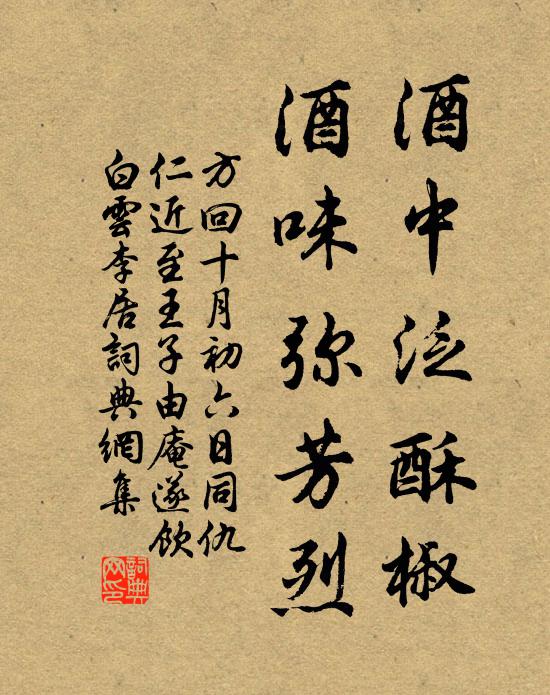 酒中泛酥椒
酒味弥芳烈
方回十月初六日同仇
仁近至王子由庵遂飲
白雲李居詞典網集
詞典
网印